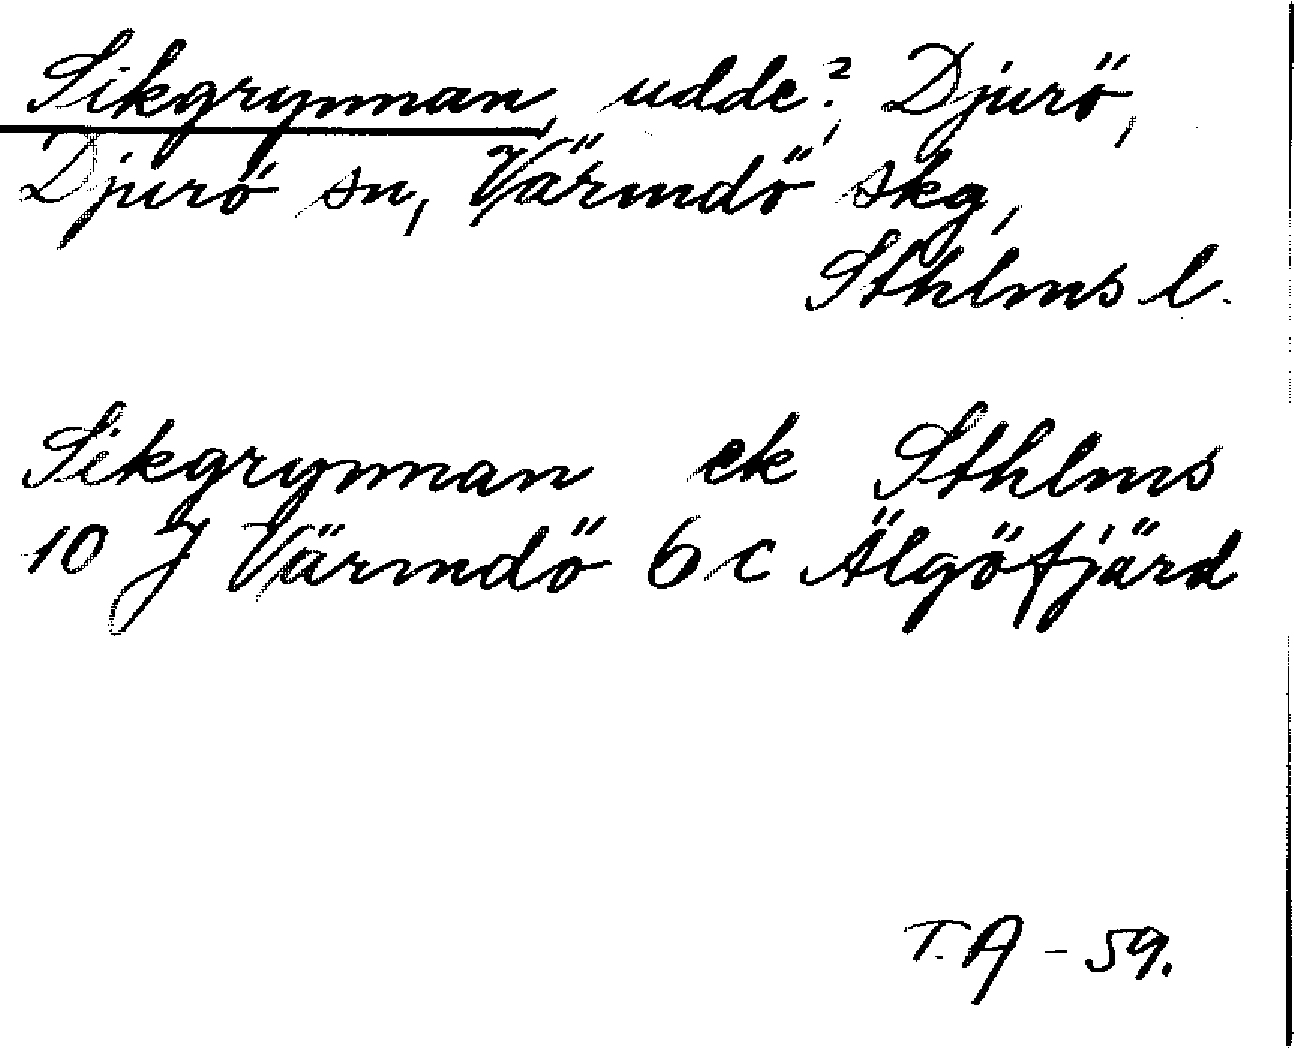 Sikgrynnan, udde?, Djurö,
Djurö sn, Värmdö skg,
Sthlms l.
Sikgrynnan ek Sthlms
10 J Värmdö 6 c Älgöfjärd
T. A - 59.